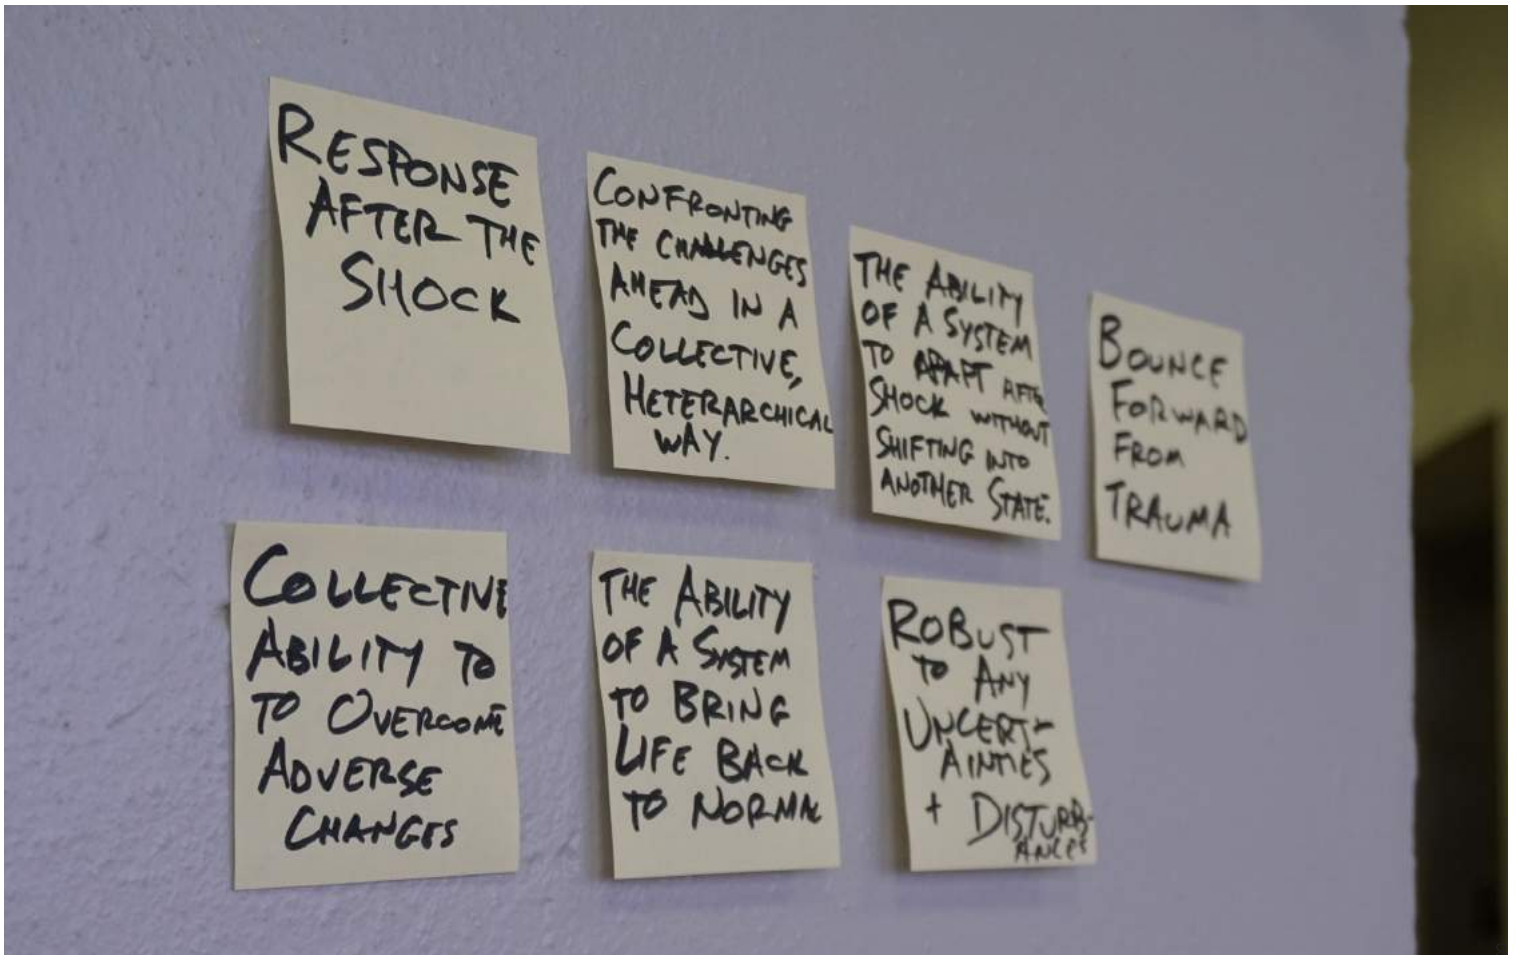 RESPONSE
AFTER THE
SHOCK
CONFRONTING
THE CHALLENGES
AHEAD IN A
COLLECTIVE,
HETERARCHICAL
WAY.
THE ABILITY
OF A SYSTEM
TO ADAPT AFTER
SHOCK WITHOUT
SHIFTING INTO
ANOTHER STATE.
BOUNCE
FORWARD
FROM
TRAUMA
COLLECTIVE
ABILITY TO
TO OVERCOME
ADVERSE
CHANGES
THE ABILITY
OF A SYSTEM
TO BRING
LIFE BACK
TO NORMAL
ROBUST
TO ANY
UNCERT-
AINTIES
+ DISTURB-
ANCES